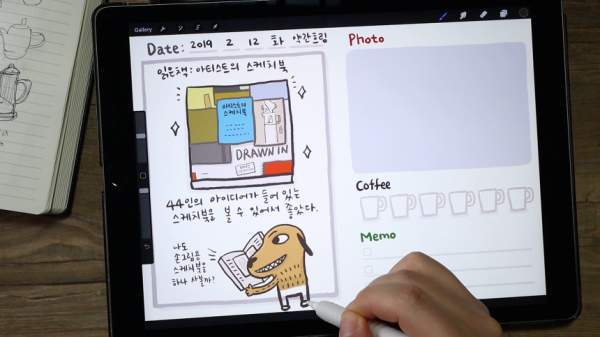 Gallery
Date: 2019 2 12 화 약간흐림
읽은책: 아티스트의 스케치북
아티스트의
스케치북
DRAWN IN
44인의 아이디어가 들어 있는
스케치북을 볼 수 있어서 좋았다.
나도
손그림용
스케치북을
하나 사볼까?
Photo
Coffee
Memo